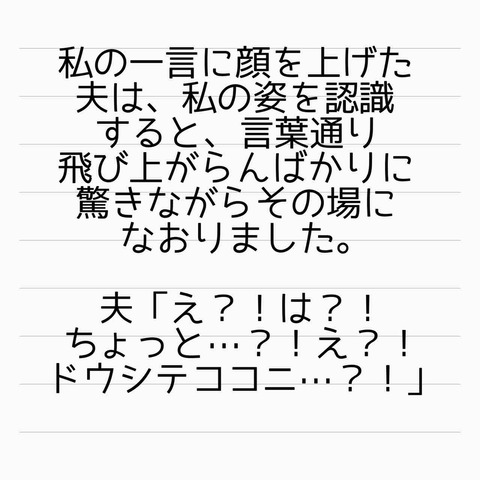 私の一言に顔を上げた
夫は、私の姿を認識
すると、言葉通り
飛び上がらんばかりに
驚きながらその場に
なおりました。
夫「え？！は？！
ちょっと…？！え？！
ドウシテココニ…？！」